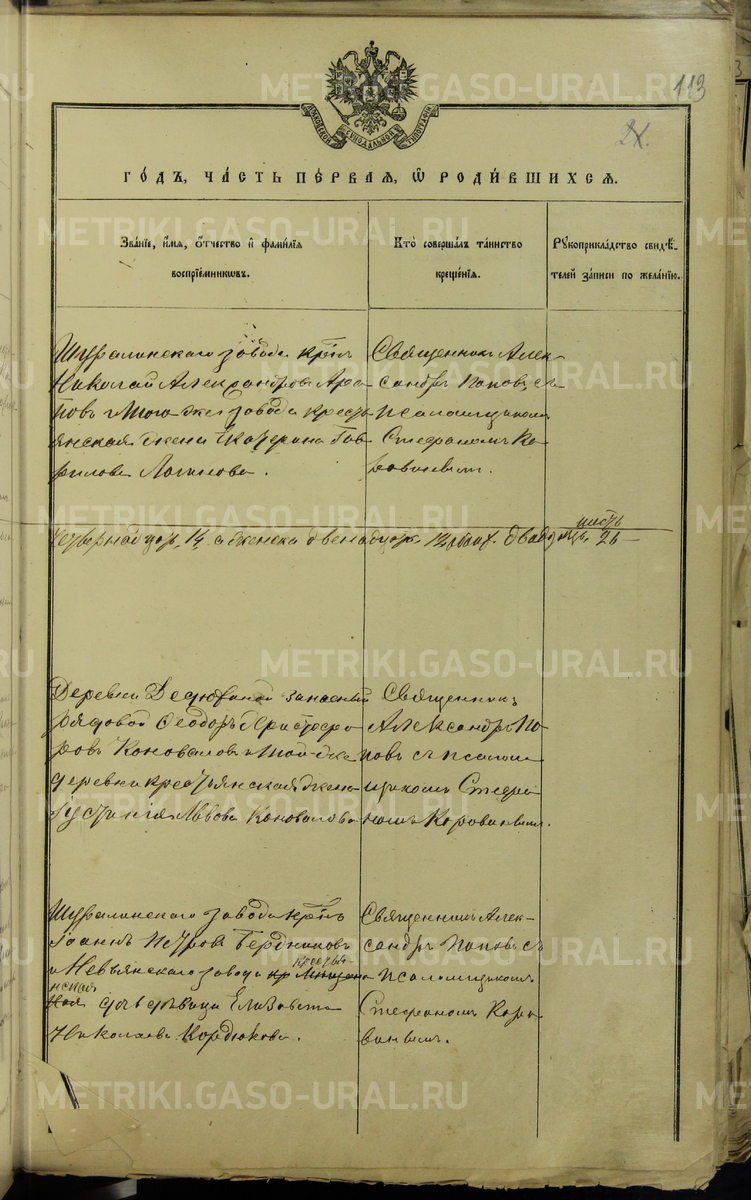 METRIKI.GASO-URAL.RU
113
24.
МОСКОВСКОЙ СѴНОДАЛЬНОЙ ТИПОГРАФІИ
ГО́ДЪ, ЧА́СТЬ ПЕ́РВАЯ, Ѡ҆ РОДИ́ВШИХСЯ.
Зва́нїе, и҆́мѧ, ѻ҆́тчество и҆ фами́лїѧ воспрїе́мникѡвъ.
Кто̀ соверша́лъ та́инство креще́нїѧ.
Рꙋкоприкла́дство свидѣ́телей за́писи по жела́нїю.
Шуралинскаго завода крѣп
Николай Александровъ Ара
повъ и того же завода кресть
янская жена Екатерина Гав
рилова Логинова.
Священникъ Алек
сандръ Поповъ съ
псаломщикомъ
Стефаномъ Ко
ровинымъ.
четырнадцать 14 а женска двенадцать 12 обоих двадцать шесть 26 —
Деревни запасный
рядовой Феодоръ Христофо
ровъ Коноваловъ и той же
деревни крестьянская жена
Львова Коновалова
Священникъ
Александръ По
повъ съ псалом
щикомъ Стефа
номъ Коровинымъ.
Шуралинскаго завода
Іоаннъ Петровъ Бердниковъ
и Невьянскаго завода крестья
нская дочь девица Елизавета
Николаева Кордюкова.
Священникъ Алек-
сандръ Поповъ съ
псаломщикомъ
Стефаномъ Коро
винымъ.
METRIKI.GASO-URAL.RU